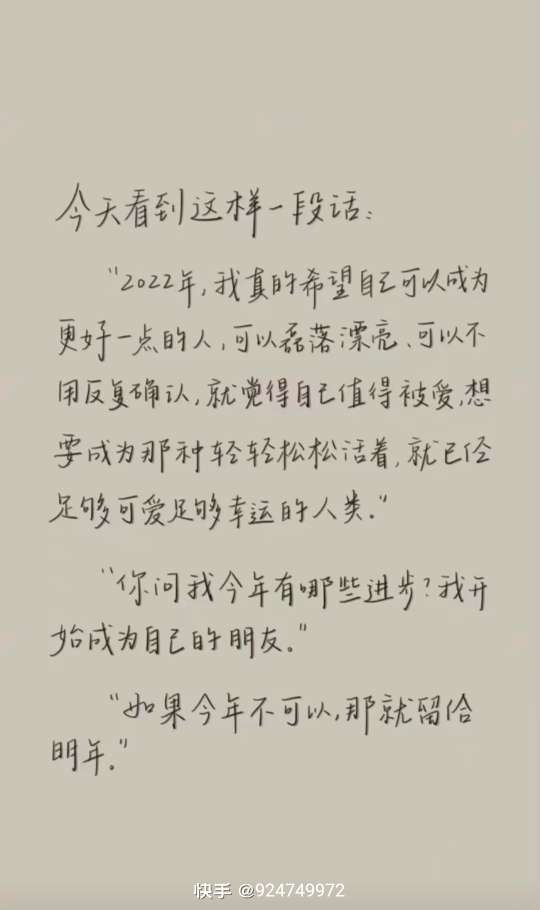 今天看到这样一段话:
"2022年,我真的希望自己可以成为
更好一点的人,可以磊落漂亮、可以不
用反复确认,就觉得自己值得被爱,想
要成为那种轻轻松松活着,就已经
足够可爱足够幸运的人类."
"你问我今年有哪些进步?我开
始成为自己的朋友."
"如果今年不可以,那就留给
明年."
快手 @924749972